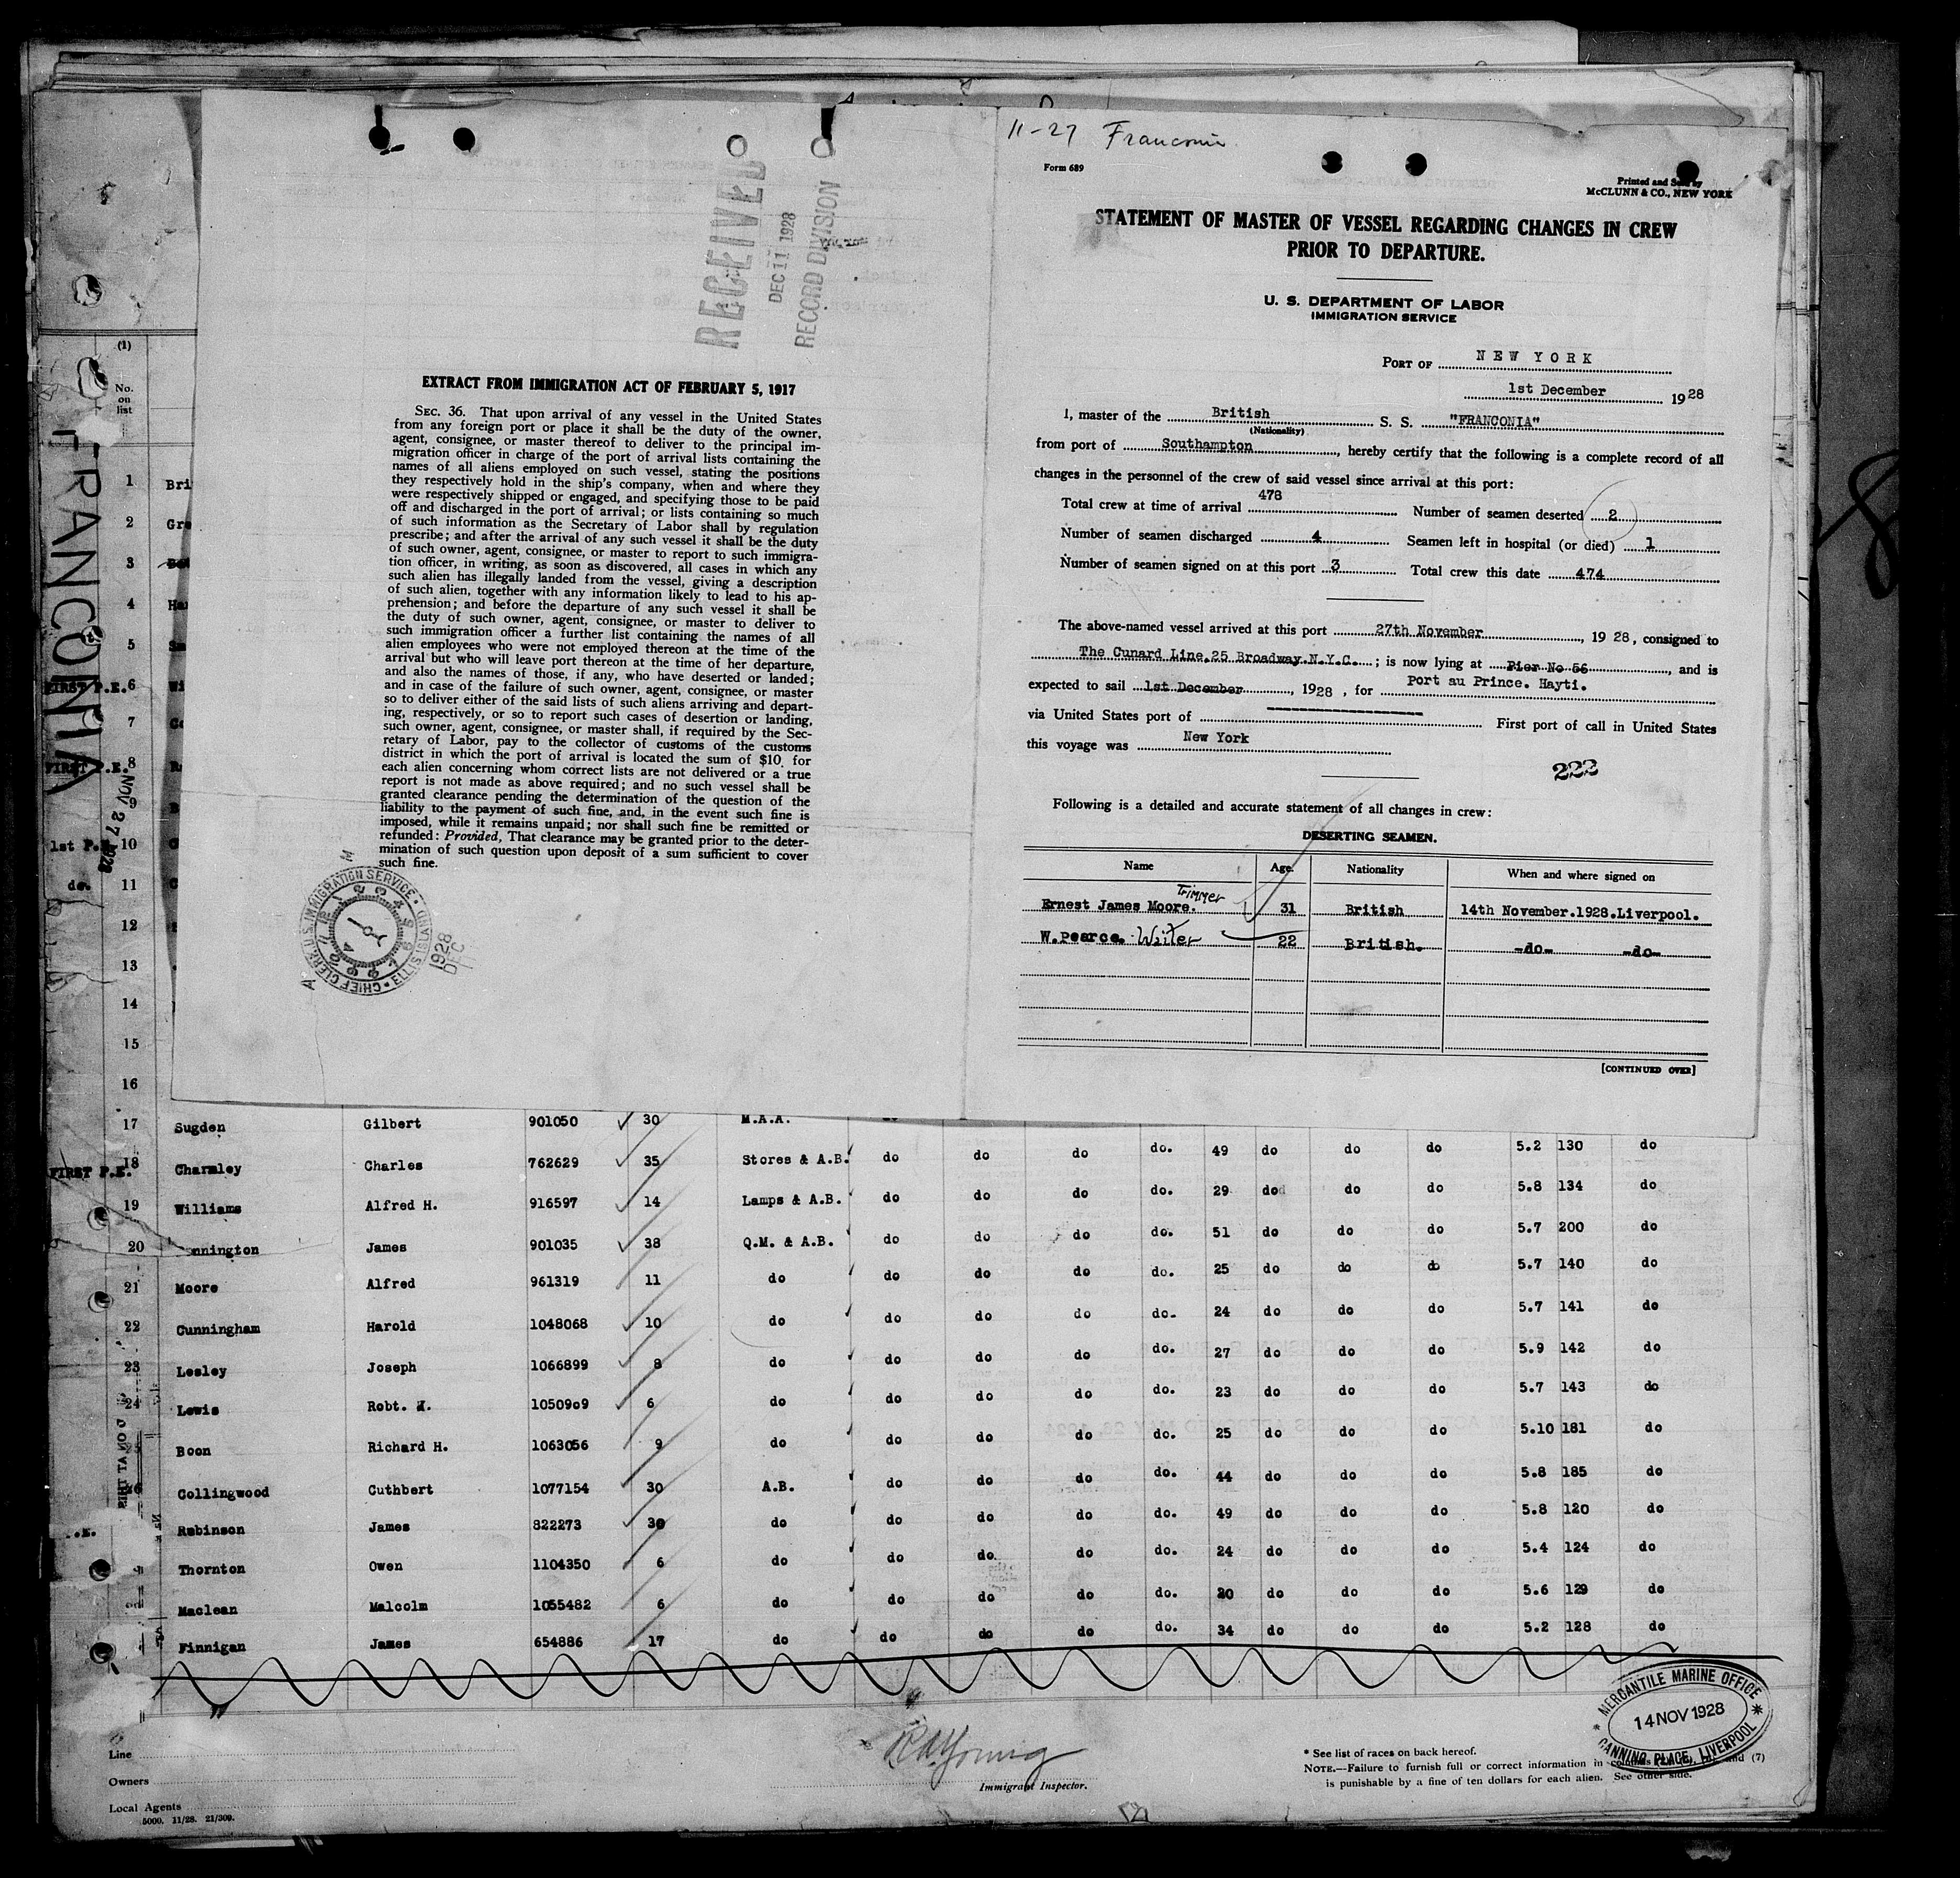 11-27 Franconia
Form 689
Printed and Sold by
McCLUNN & CO., NEW YORK
STATEMENT OF MASTER OF VESSEL REGARDING CHANGES IN CREW
PRIOR TO DEPARTURE.
U. S. DEPARTMENT OF LABOR
IMMIGRATION SERVICE
PORT OF NEW YORK
1st December 1928
I, master of the British S. S. "FRANCONIA"
(Nationality)
from port of Southampton, hereby certify that the following is a complete record of all
changes in the personnel of the crew of said vessel since arrival at this port:
Total crew at time of arrival 478 Number of seamen deserted 2
Number of seamen discharged 4 Seamen left in hospital (or died) 1
Number of seamen signed on at this port 3 Total crew this date 474
The above-named vessel arrived at this port 27th November, 1928, consigned to
The Cunard Line, 25 Broadway. N.Y.C. ; is now lying at Pier No 56, and is
expected to sail 1st December, 1928, for Port au Prince. Hayti.
via United States port of First port of call in United States
this voyage was New York
222
Following is a detailed and accurate statement of all changes in crew:
DESERTING SEAMEN.
Name Age. Nationality When and where signed on
Ernest James Moore. Trimmer 31 British 14th November.1928.Liverpool.
W.Pearce. Waiter 22 British. -do- -do-
[CONTINUED OVER]
RECEIVED
DEC 11 1928
RECORD DIVISION
EXTRACT FROM IMMIGRATION ACT OF FEBRUARY 5, 1917
SEC. 36. That upon arrival of any vessel in the United States
from any foreign port or place it shall be the duty of the owner,
agent, consignee, or master thereof to deliver to the principal im-
migration officer in charge of the port of arrival lists containing the
names of all aliens employed on such vessel, stating the positions
they respectively hold in the ship's company, when and where they
were respectively shipped or engaged, and specifying those to be paid
off and discharged in the port of arrival; or lists containing so much
of such information as the Secretary of Labor shall by regulation
prescribe; and after the arrival of any such vessel it shall be the duty
of such owner, agent, consignee, or master to report to such immigra-
tion officer, in writing, as soon as discovered, all cases in which any
such alien has illegally landed from the vessel, giving a description
of such alien, together with any information likely to lead to his ap-
prehension; and before the departure of any such vessel it shall be
the duty of such owner, agent, consignee, or master to deliver to
such immigration officer a further list containing the names of all
alien employees who were not employed thereon at the time of the
arrival but who will leave port thereon at the time of her departure,
and also the names of those, if any, who have deserted or landed;
and in case of the failure of such owner, agent, consignee, or master
so to deliver either of the said lists of such aliens arriving and depart-
ing, respectively, or so to report such cases of desertion or landing,
such owner, agent, consignee, or master shall, if required by the Sec-
retary of Labor, pay to the collector of customs of the customs
district in which the port of arrival is located the sum of $10 for
each alien concerning whom correct lists are not delivered or a true
report is not made as above required; and no such vessel shall be
granted clearance pending the determination of the question of the
liability to the payment of such fine, and, in the event such fine is
imposed, while it remains unpaid; nor shall such fine be remitted or
refunded: Provided, That clearance may be granted prior to the deter-
mination of such question upon deposit of a sum sufficient to cover
such fine.
CHIEF CLERK U.S. IMMIGRATION SERVICE ELLIS ISLAND
1928 DEC
FRANCONIA
NOV 27 1928
(1)
No.
on
list
1 Bri
2 Gre
3
4 Har
5 Sm
FIRST P.E. 6 Wi
7
FIRST P.E. 8
9
1st P. 10
do. 11
12
13
14
15
16
17 Sugden Gilbert 901050 30 M.A.A.
FIRST P.E. 18 Charmley Charles 762629 35 Stores & A.B. do do do do. 49 do do do 5.2 130 do
19 Williams Alfred H. 916597 14 Lamps & A.B. do do do do. 29 do do do 5.8 134 do
20 nnington James 901035 38 Q.M. & A.B. do do do do. 51 do do do 5.7 200 do
21 Moore Alfred 961319 11 do do do do do. 25 do do do 5.7 140 do
22 Cunningham Harold 1048068 10 do do do do do. 24 do do do 5.7 141 do
23 Lesley Joseph 1066899 8 do do do do do. 27 do do do 5.9 142 do
24 Lewis Robt. 1050909 6 do do do do do. 23 do do do 5.7 143 do
25 Boon Richard H. 1063056 9 do do do do do. 25 do do do 5.10 181 do
Collingwood Cuthbert 1077154 30 A.B. do do do do. 44 do do do 5.8 185 do
Robinson James 822273 30 do do do do do. 49 do do do 5.8 120 do
Thornton Owen 1104350 6 do do do do do. 24 do do do 5.4 124 do
Maclean Malcolm 1055482 6 do do do do do. 20 do do do 5.6 129 do
Finnigan James 654886 17 do do do do do. 34 do do do 5.2 128 do
MERCANTILE MARINE OFFICE
14 NOV 1928
CANNING PLACE, LIVERPOOL
Line
Owners
Local Agents
5000. 11/28. 21/309.
R A Young
Immigrant Inspector.
* See list of races on back hereof.
NOTE.—Failure to furnish full or correct information in columns and (7)
is punishable by a fine of ten dollars for each alien. See other side.